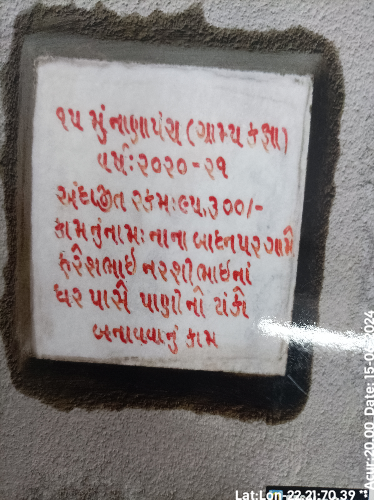 ૧૫ મું નાણાપંચ (ગ્રામ્ય કક્ષા)
વર્ષ:૨૦૨૦-૨૧
અંદાજીત રકમ:૯૫,૩૦૦/-
કામનુંનામ: નાના બાદનપર ગામે
હરેશભાઇ નરશીભાઇનાં
ઘર પાસે પાણીની ટાંકી
બનાવવાનું કામ
Lat:Lon-22.21:70.39
Acur-20.00 Date: 15-0